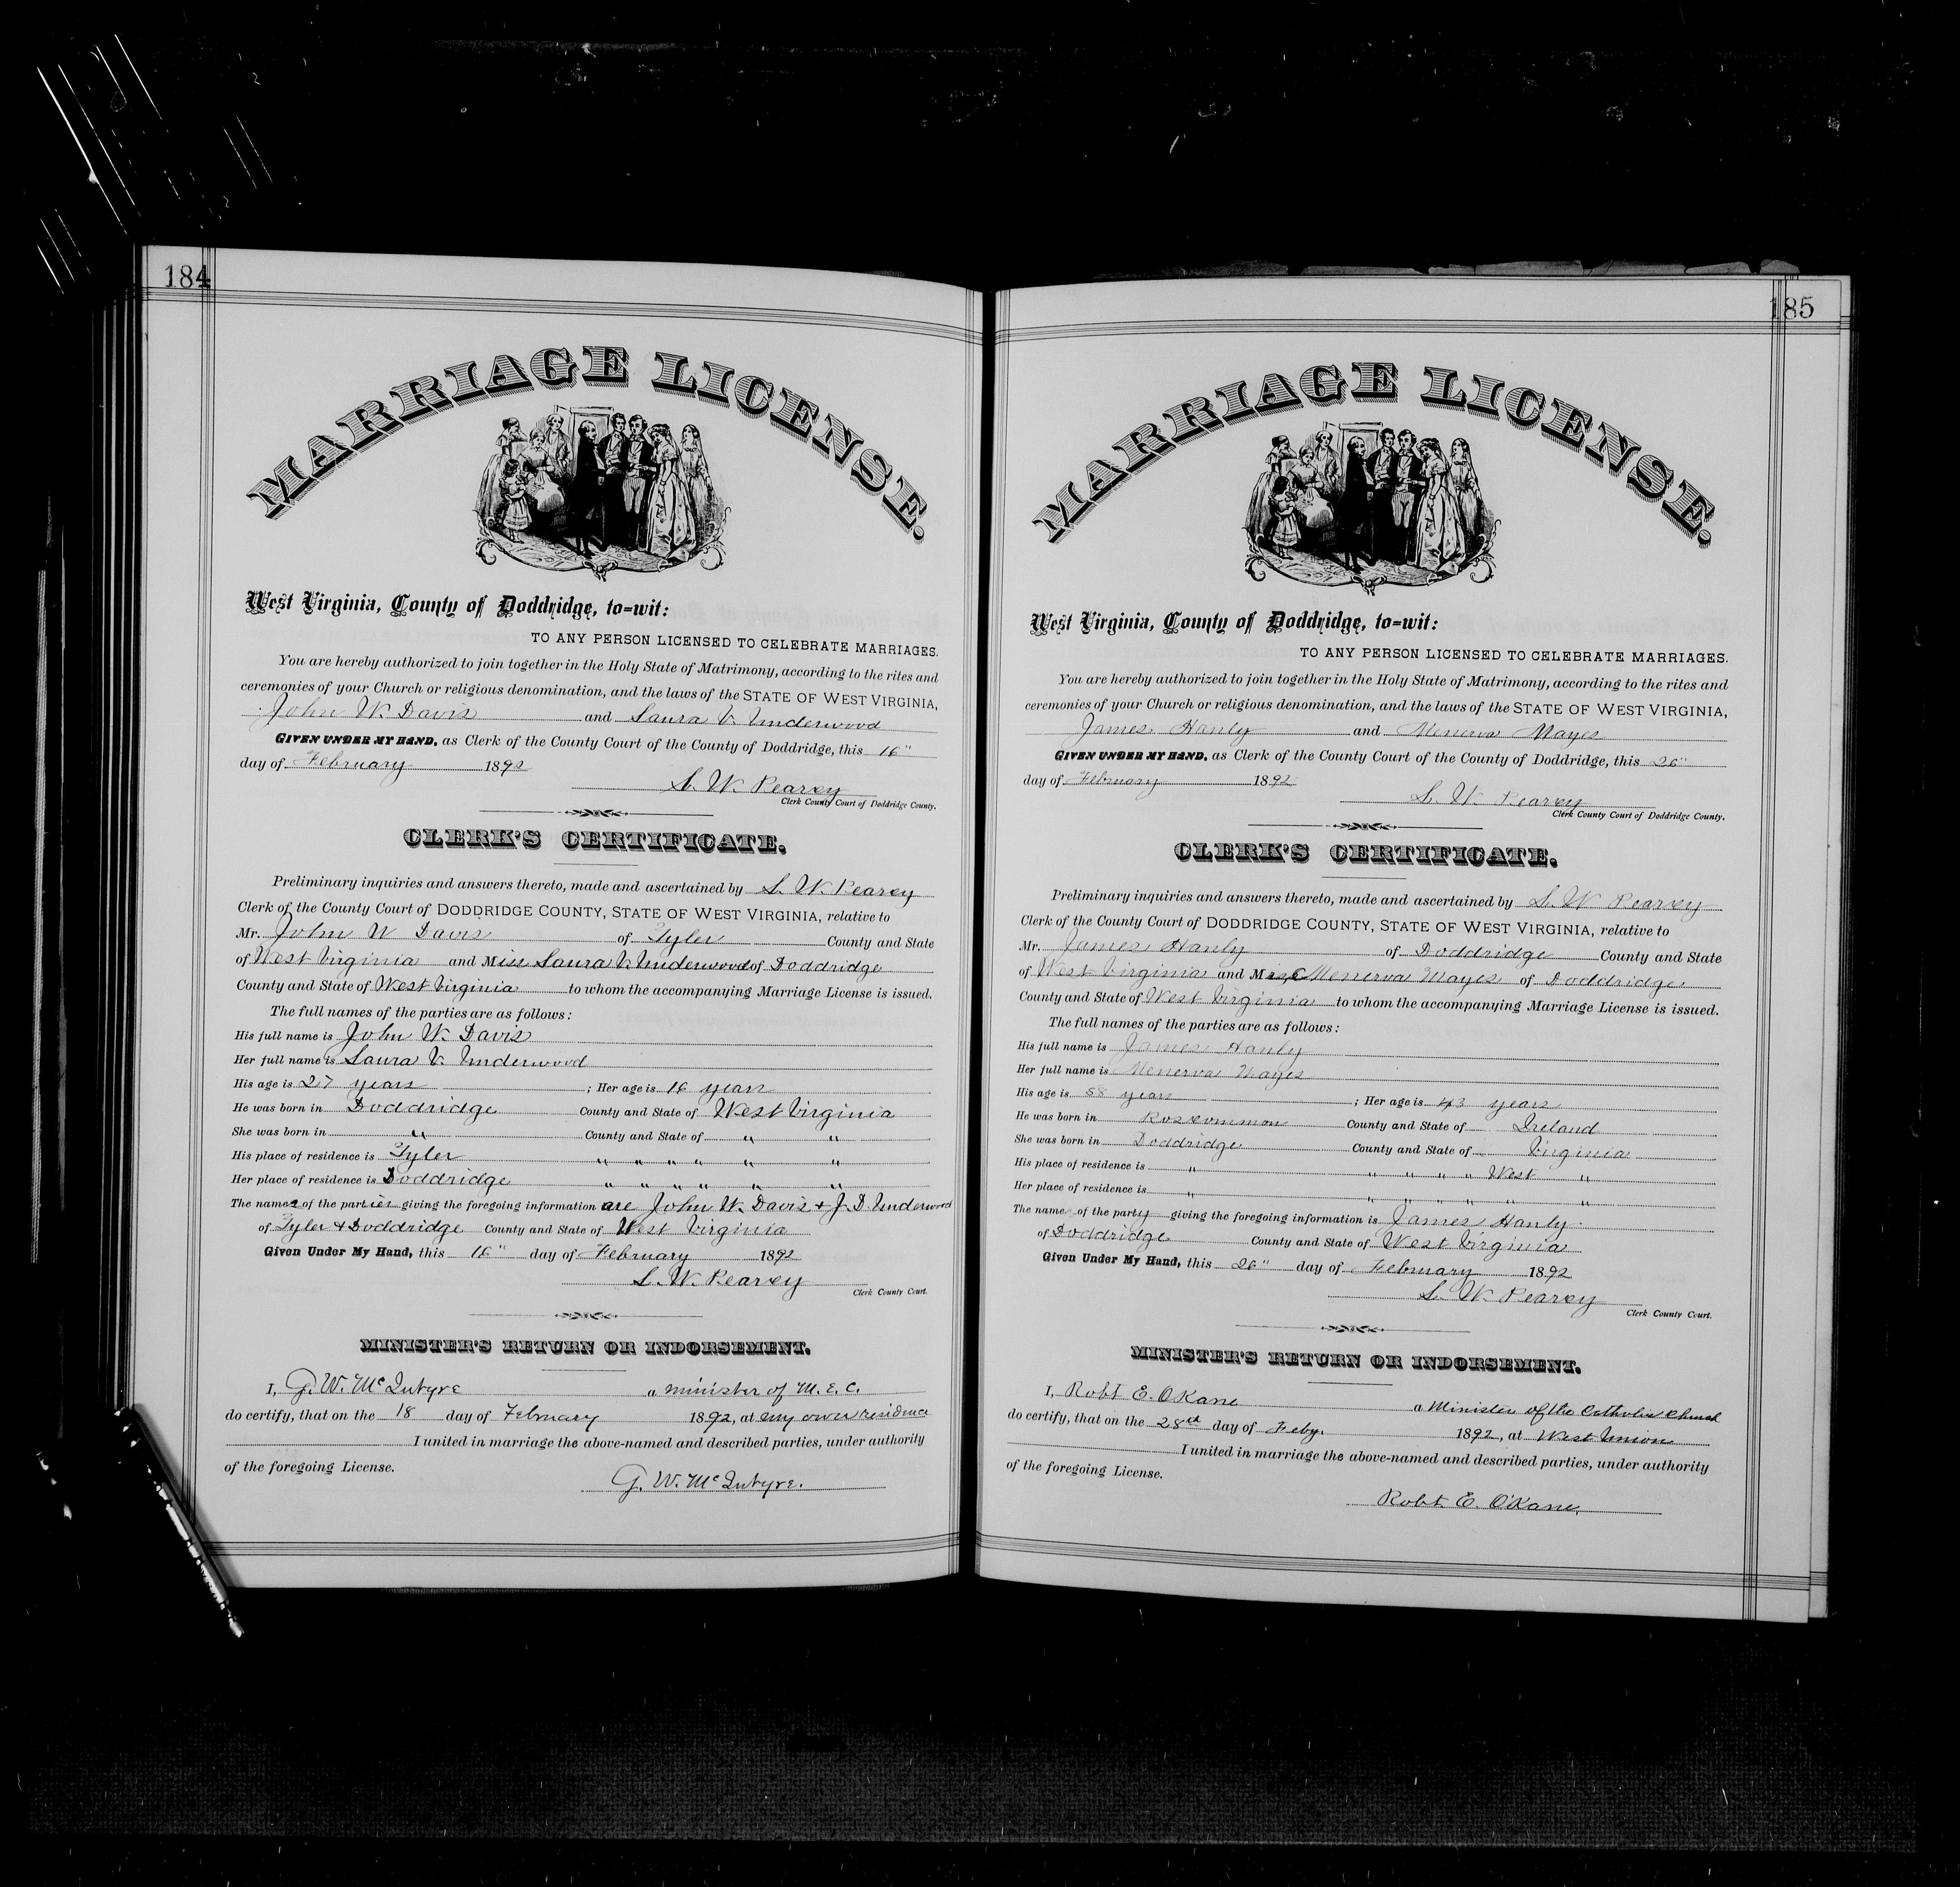 184
MARRIAGE LICENSE.
West Virginia, County of Doddridge, to=wit:
TO ANY PERSON LICENSED TO CELEBRATE MARRIAGES.
You are hereby authorized to join together in the Holy State of Matrimony, according to the rites and
ceremonies of your Church or religious denomination, and the laws of the STATE OF WEST VIRGINIA,
John W. Davis and Laura V. Underwood
GIVEN UNDER MY HAND, as Clerk of the County Court of the County of Doddridge, this 16"
day of February 1892
L. W. Pearcy
Clerk County Court of Doddridge County.
CLERK'S CERTIFICATE.
Preliminary inquiries and answers thereto, made and ascertained by L. W. Pearcy
Clerk of the County Court of DODDRIDGE COUNTY, STATE OF WEST VIRGINIA, relative to
Mr. John W Davis of Tyler County and State
of West Virginia and Miss Laura V. Underwood of Doddridge
County and State of West Virginia to whom the accompanying Marriage License is issued.
The full names of the parties are as follows:
His full name is John W. Davis
Her full name is Laura V. Underwood
His age is 27 years ; Her age is 16 years
He was born in Doddridge County and State of West Virginia
She was born in " County and State of " "
His place of residence is Tyler " " " " " "
Her place of residence is Doddridge " " " " " "
The names of the parties giving the foregoing information are John W. Davis & J. D. Underwood
of Tyler & Doddridge County and State of West Virginia
Given Under My Hand, this 16" day of February 1892
L. W. Pearcy
Clerk County Court.
MINISTER'S RETURN OR INDORSEMENT.
I, G. W. McIntyre a minister of M. E. C.
do certify, that on the 18 day of February 1892, at my own residence
I united in marriage the above-named and described parties, under authority
of the foregoing License.
G. W. McIntyre.
185
MARRIAGE LICENSE.
West Virginia, County of Doddridge, to=wit:
TO ANY PERSON LICENSED TO CELEBRATE MARRIAGES.
You are hereby authorized to join together in the Holy State of Matrimony, according to the rites and
ceremonies of your Church or religious denomination, and the laws of the STATE OF WEST VIRGINIA,
James Hanly and Menerva Mayes
GIVEN UNDER MY HAND, as Clerk of the County Court of the County of Doddridge, this 26"
day of February 1892
L. W. Pearcy
Clerk County Court of Doddridge County.
CLERK'S CERTIFICATE.
Preliminary inquiries and answers thereto, made and ascertained by L. W Pearcy
Clerk of the County Court of DODDRIDGE COUNTY, STATE OF WEST VIRGINIA, relative to
Mr. James Hanly of Doddridge County and State
of West Virginia and M Menerva Mayes of Doddridge
County and State of West Virginia to whom the accompanying Marriage License is issued.
The full names of the parties are as follows:
His full name is James Hanly
Her full name is Menerva Mayes
His age is 58 years ; Her age is 43 years
He was born in Roscommon County and State of Ireland
She was born in Doddridge County and State of Virginia
His place of residence is " " " " " West "
Her place of residence is " " " " " " "
The name of the party giving the foregoing information is James Hanly.
of Doddridge County and State of West Virginia
Given Under My Hand, this 26" day of February 1892
L. W. Pearcy
Clerk County Court.
MINISTER'S RETURN OR INDORSEMENT.
I, Robt E. O'Kane a Minister of the Catholic Church
do certify, that on the 28th day of Feby. 1892, at West Union
I united in marriage the above-named and described parties, under authority
of the foregoing License.
Robt. E. O'Kane,